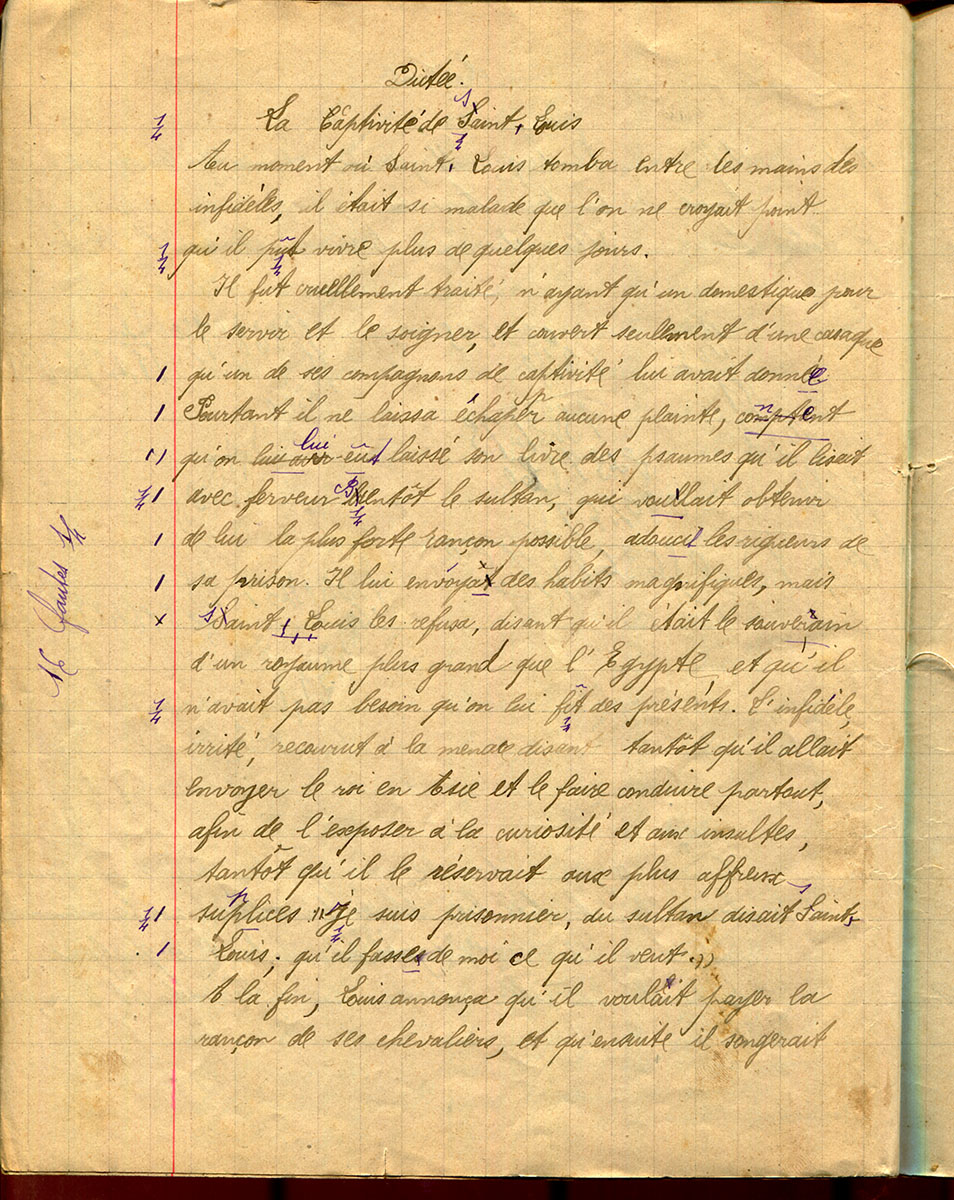 Dictée.
La Captivité de Saint, Louis
Au moment où Saint, Louis tomba entre les mains des
infidéles, il était si malade que l'on ne croyait point
qu'il pût vivre plus de quelques jours.
Il fut cruellement traité, n'ayant qu'un domestique pour
le servir et le soigner, et couvert seulement d'une casaque
qu'un de ses compagnons de captivité lui avait donnée
Pourtant il ne laissa échaper aucune plainte, content
qu'on lui eût laissé son livre des psaumes qu'il lisait
avec ferveur Bientôt le sultan, qui voullait obtenir
de lui la plus forte rançon possible, adoucit les rigueurs de
sa prison. Il lui envoyat des habits magnifiques, mais
Saint, Louis les refusa, disant qu'il était le souverain
d'un royaume plus grand que l'Egypte, et qu'il
n'avait pas besoin qu'on lui fît des présents. L'infidéle,
irrité, recourut à la menace disant tantôt qu'il allait
envoyer le roi en Asie et le faire conduire partout,
afin de l'exposer à la curiosité et aux insultes,
tantôt qu'il le réservait aux plus affreux
suplices "Je suis prisonnier, du sultan disait Saint,
Louis, qu'il fasses de moi ce qu'il veut."
A la fin, Louis annonça qu'il voulait payer la
rançon de ses chevaliers, et qu'ensuite il songerait
16 fautes 1/4